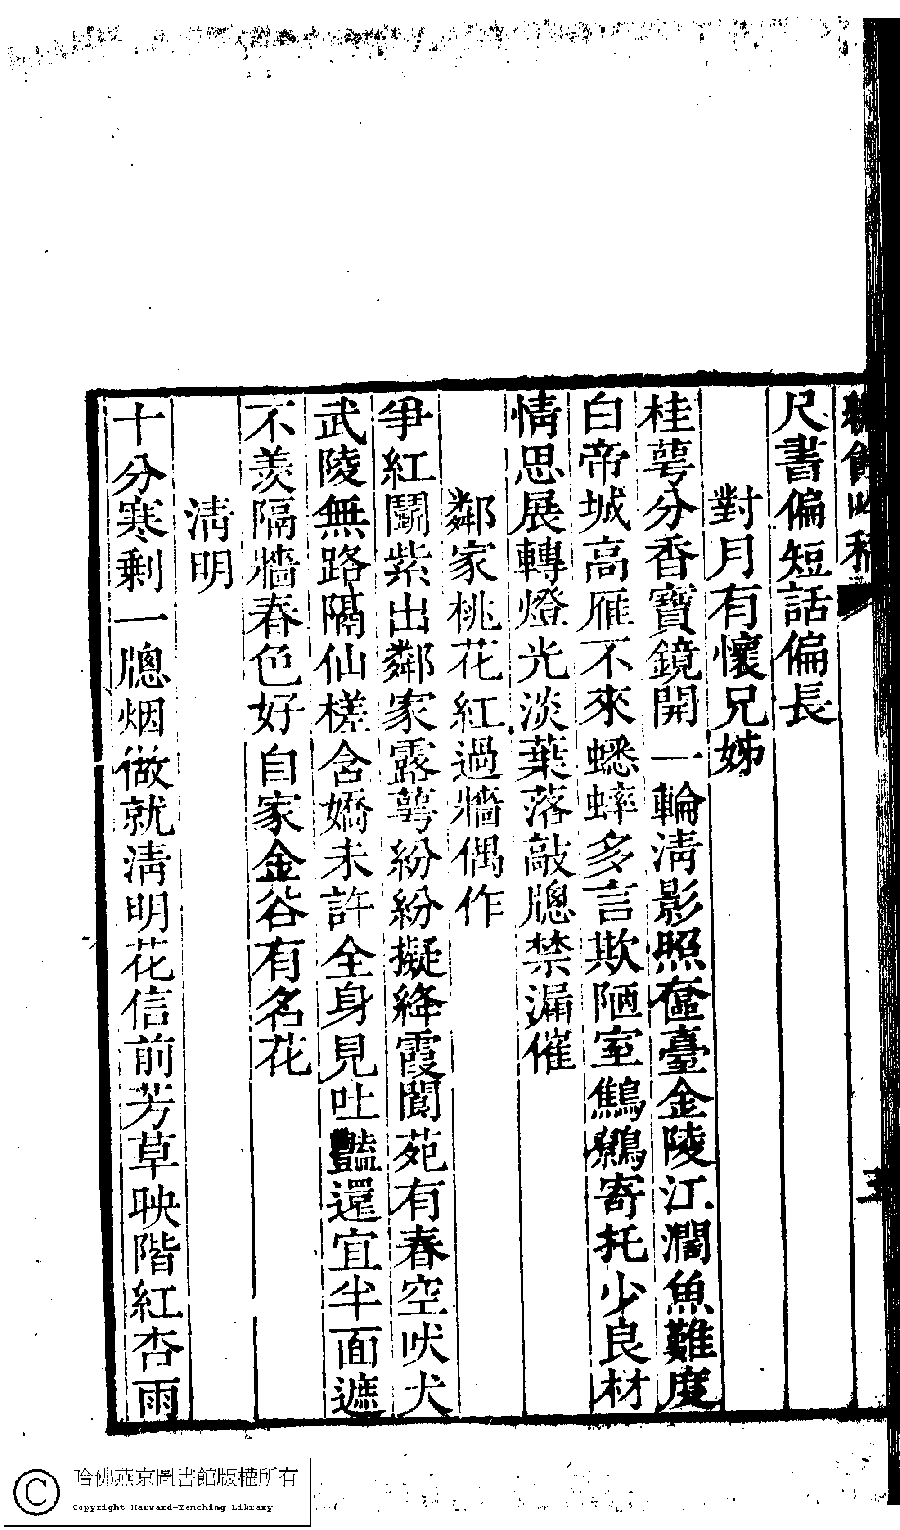 尺書偏短話偏長
對月有懷兄姊
桂萼分香寶鏡開一輪淸影照奩臺金陵江濶魚難度
白帝城高雁不來蟋蟀多言欺陋室鷦鷯寄托少良材
情思展轉燈光淡葉落敲牕禁漏催
鄰家桃花紅過牆偶作
爭紅鬭紫出鄰家露萼紛紛擬絳霞閬苑有春空吠犬
武陵無路隔仙槎含嬌未許全身見吐豔還宜半面遮
不羨隔牆春色好自家金谷有名花
淸明
十分寒剩一牕烟做就淸明花信前芳草映階紅杏雨
哈佛燕京圖書館版權所有
Copyright Harvard-Yenching Library